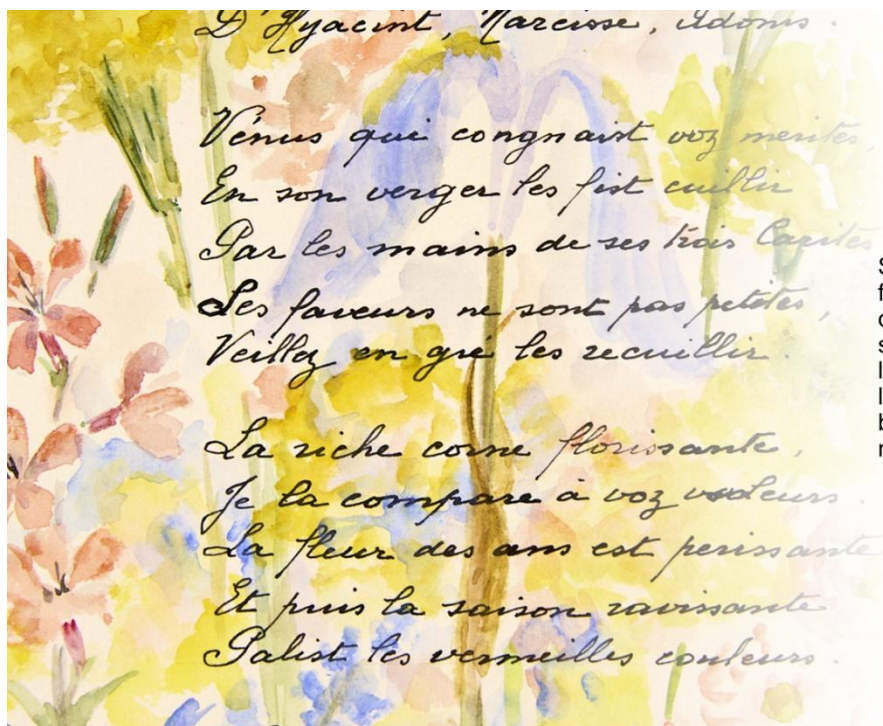 D'Hyacint, Narcisse, Adonis.
Vénus qui congnaist voz merites,
En son verger les fist cuillir
Par les mains de ses trois Carites
Les faveurs ne sont pas petites,
Veillez en gré les recuillir.
La riche corne florissante,
Je la compare à voz valeurs.
La fleur des ans est perissante
Et puis la saison ravissante
Palist les vermeilles couleurs.